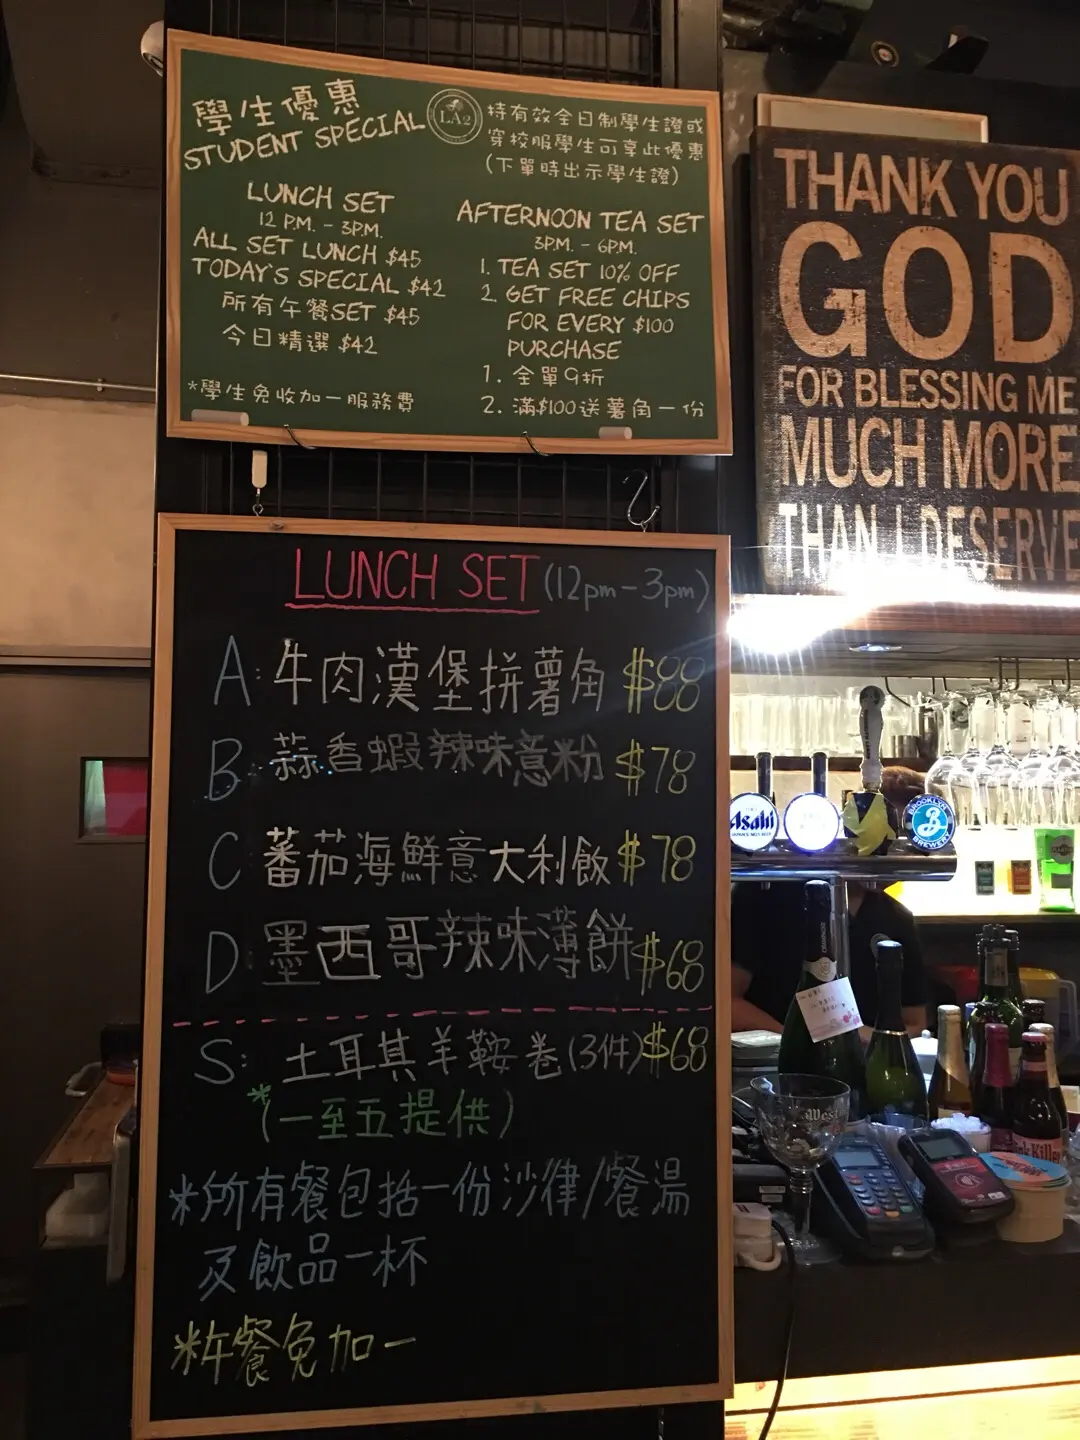 學生優惠
STUDENT SPECIAL
LA2
持有效全日制學生證或
穿校服學生可享此優惠
(下單時出示學生證)
LUNCH SET
12 P.M. - 3P.M.
ALL SET LUNCH $45
TODAY'S SPECIAL $42
所有午餐SET $45
今日精選 $42
*學生免收加一服務費
AFTERNOON TEA SET
3P.M. - 6P.M.
1. TEA SET 10% OFF
2. GET FREE CHIPS
FOR EVERY $100
PURCHASE
1. 全單9折
2. 滿$100送薯角一份
THANK YOU
GOD
FOR BLESSING ME
MUCH MORE
THAN I DESERVE
LUNCH SET (12pm-3pm)
A: 牛肉漢堡拼薯角 $88
B: 蒜香蝦辣味意粉 $78
C: 蕃茄海鮮意大利飯 $78
D: 墨西哥辣味薄餅 $68
S: 土耳其羊鞍卷(3件) $68
*(一至五提供)
*所有餐包括一份沙律/餐湯
及飲品一杯
*午餐免加一
Asahi
BROOKLYN
BREWERY